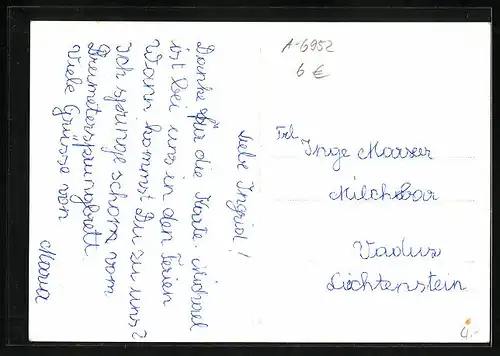 A-6952
6 €
Liebe Ingrid!
Danke für die Karte Michael
ist bei uns in den Ferien
Wann kommst Du zu uns?
Ich springe schon vom
Dreimetersprungbrett
Viele Grüsse von
Maria
Frl
Inge Marxer
Milchbar
Vaduz
Liechtenstein
4.-